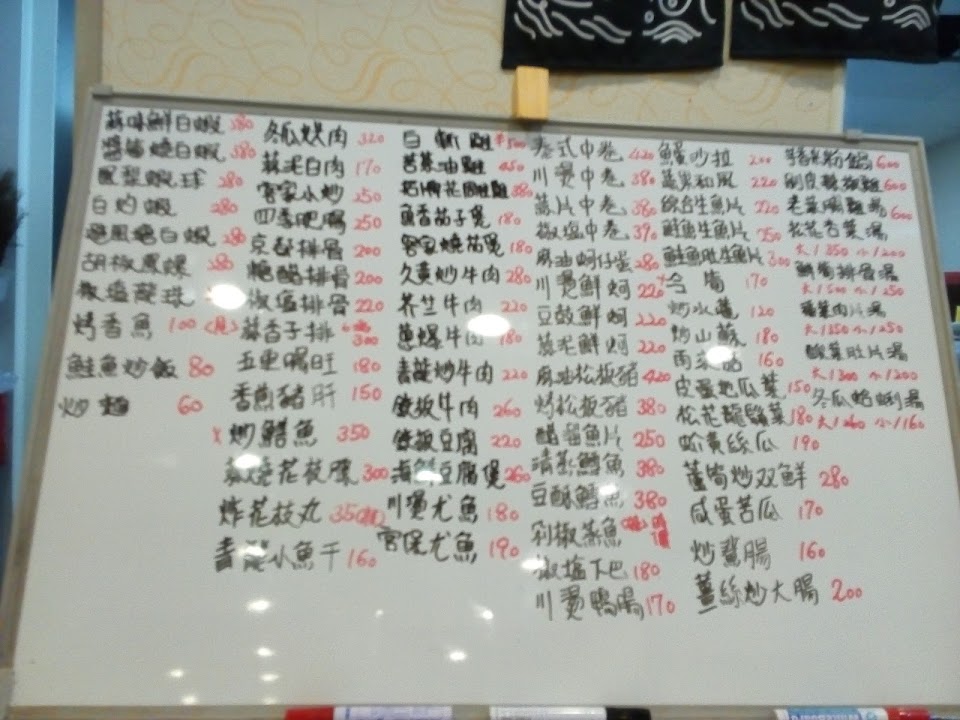 蒜味鮮白蝦 380
醬爆燒白蝦 380
鳳梨蝦球 280
白灼蝦 280
避風塘白蝦 280
胡椒鳳螺 280
椒塩龍珠
烤香魚 100
鮭魚炒飯 80
炒麵 60
冬瓜焢肉 320
蒜泥白肉 170
客家小炒 250
四季肥腸 250
京都排骨 200
糖醋排骨 200
椒塩排骨 220
蒜香子排 300
五更腸旺 180
香煎豬肝 150
炒鱔魚 350
花枝 300
炸花枝丸 350
青龍小魚干 160
白斬雞 500
苦茶油雞 450
380
魚香茄子煲 180
客家燒茄煲 180
久黃炒牛肉 280
芥兰牛肉 220
蔥爆牛肉 180
青龍炒牛肉 220
鐵板牛肉 260
鐵板豆腐 220
海鮮豆腐煲 260
川燙尤魚 180
宮保尤魚 190
泰式中卷 420
川燙中卷 380
蒜片中卷 380
椒塩中卷 390
麻油蚵仔蛋 280
川燙鮮蚵 220
豆豉鮮蚵 220
蒜泥鮮蚵 220
麻油松板豬 420
烤松板豬 380
醋溜魚片 250
清蒸鱈魚 380
豆酥鱈魚 380
剁椒蒸魚
椒塩下巴 180
川燙鴨腸 170
鰻沙拉 200
蔬果和風 220
綜合生魚片 220
鮭魚生魚片 250
鮭魚肚生魚片 300
今筍 170
炒水蓮 120
炒山蘇 180
雨來菇 160
皮蛋地瓜葉 150
松花龍鬚菜 180
蚵黃絲瓜 190
蘆筍炒双鮮 280
咸蛋苦瓜 170
炒鵞腸 160
薑絲炒大腸 200
600
剝皮辣椒雞 600
老菜脯雞湯 600
大1350 小1200
鮮筍排骨湯
大1500 小1250
福菜肉片湯
大1350 小1250
酸菜肚片湯
大1300 小1200
冬瓜蛤蜊湯
大1260 小1160